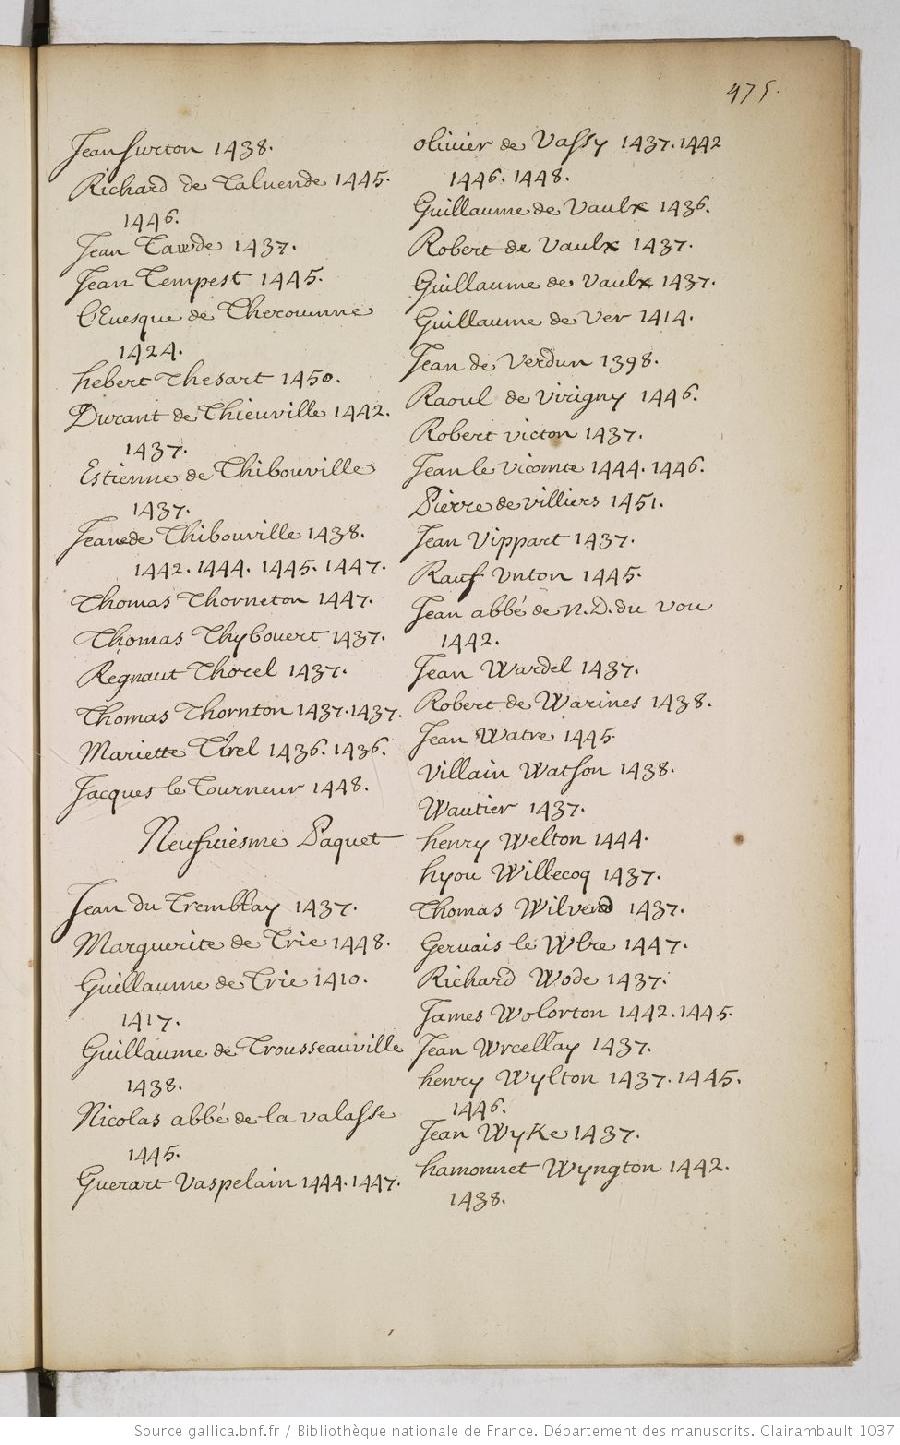 475.
Jean Surton 1438.
Richard de Taluende 1445.
1446.
Jean Tawde 1437.
Jean Tempest 1445.
l'Euesque de Therouanne
1424.
hebert Thesart 1450.
Durant de Thieuville 1442.
1437.
Estienne de Thibouville
1437.
Jean de Thibouville 1438.
1442. 1444. 1445. 1447.
Thomas Thorneton 1447.
Thomas Thybouert 1437.
Regnaut Thorel 1437.
Thomas Thornton 1437. 1437.
Mariette Tirel 1436. 1436.
Jacques le Tourneur 1448.
Neufuiesme Paquet
Jean du Tremblay 1437.
Marguerite de Trie 1448.
Guillaume de Trie 1410.
1417.
Guillaume de Trousseauville
1438.
Nicolas abbé de la valasse
1445.
Guerart Vaspelain 1444. 1447.
olivier de Vassy 1437. 1442
1446. 1448.
Guillaume de Vaulx 1436.
Robert de Vaulx 1437.
Guillaume de Vaulx 1437.
Guillaume de Ver 1414.
Jean de Verdun 1398.
Raoul de Virigny 1446.
Robert victon 1437.
Jean le Vicomte 1444. 1446.
Pierre de villiers 1451.
Jean Vippart 1437.
Rauf Vnton 1445.
Jean abbé de N.D. du vou
1442.
Jean Wardel 1437.
Robert de Warines 1438.
Jean Watre 1445.
Villain Watson 1438.
Wautier 1437.
henry Welton 1444.
hyou Willecoq 1437.
Thomas 1437.
Gervais le Wbre 1447.
Richard Wode 1437.
James Wolorton 1442. 1445.
Jean Wrcellay 1437.
henry Wylton 1437. 1445.
1446.
Jean Wyke 1437.
hamonnet Wyngton 1442.
1438.
Source gallica.bnf.fr / Bibliothèque nationale de France. Département des manuscrits. Clairambault 1037